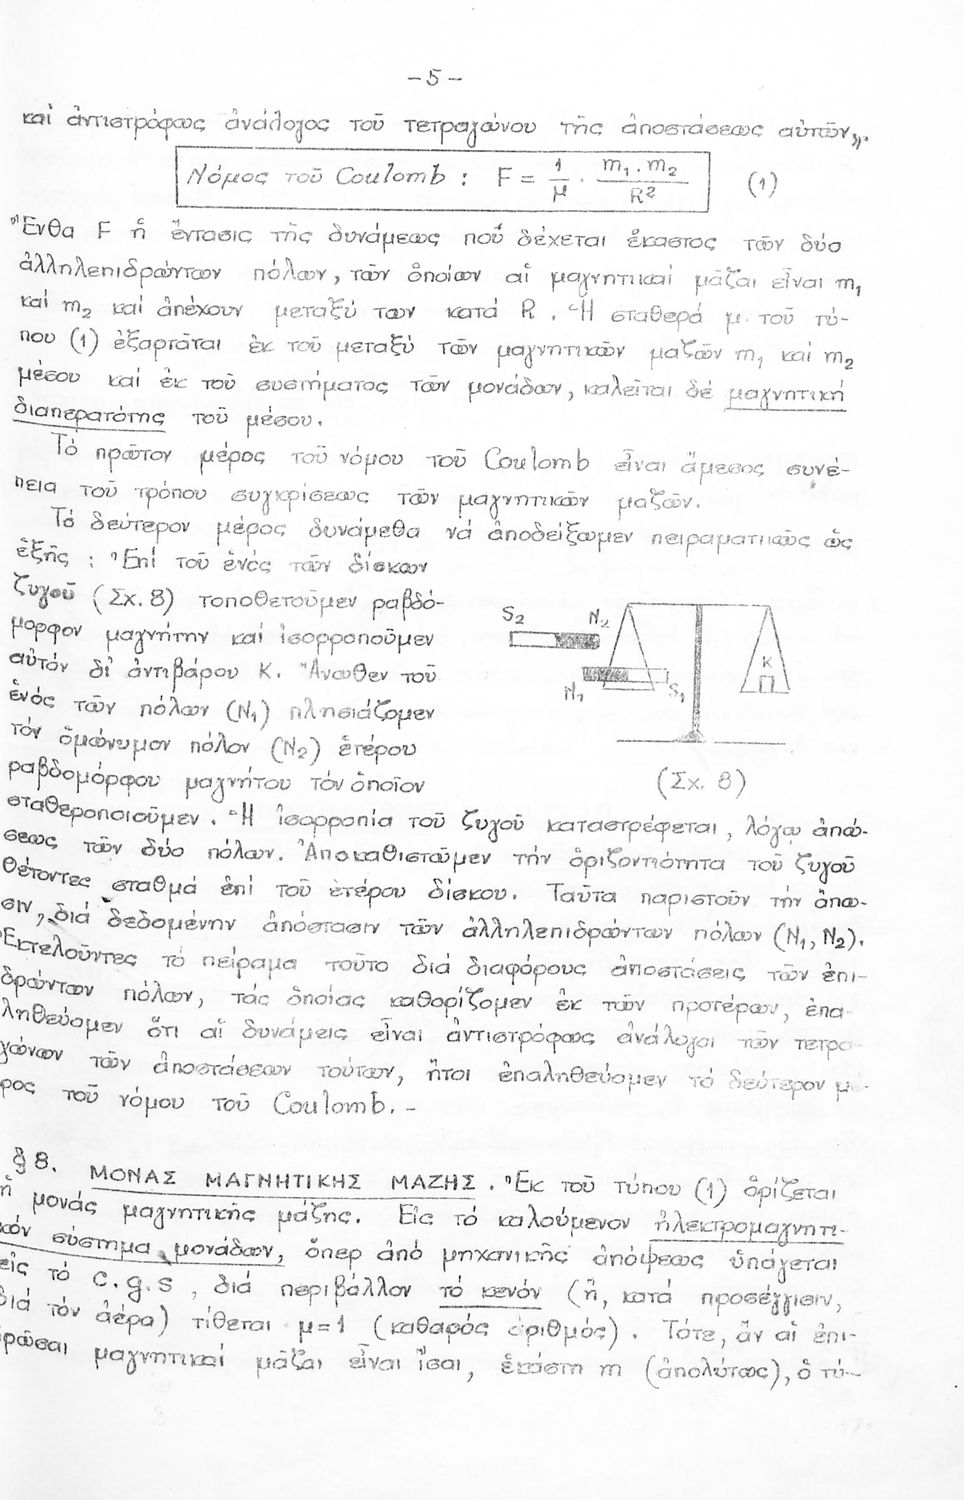 -5-
καί ἀντιστρόφως ἀνάλογος τοῦ τετραγώνου τῆς ἀποστάσεως αὐτῶν».
Νόμος τοῦ Coulomb : F = 1/μ · m₁.m₂/R² (1)
Ἔνθα F ἡ ἔντασις τῆς δυνάμεως πού δέχεται ἕκαστος τῶν δύο
ἀλληλεπιδρώντων πόλων, τῶν ὁποίων αἱ μαγνητικαί μᾶζαι εἶναι m₁
καί m₂ καί ἀπέχουν μεταξύ των κατά R. Ἡ σταθερά μ τοῦ τύ-
που (1) ἐξαρτᾶται ἐκ τοῦ μεταξύ τῶν μαγνητικῶν μαζῶν m₁ καί m₂
μέσου καί ἐκ τοῦ συστήματος τῶν μονάδων, καλεῖται δέ μαγνητική
διαπερατότης τοῦ μέσου.
Τό πρῶτον μέρος τοῦ νόμου τοῦ Coulomb εἶναι ἄμεσος συνέ-
πεια τοῦ τρόπου συγκρίσεως τῶν μαγνητικῶν μαζῶν.
Τό δεύτερον μέρος δυνάμεθα νά ἀποδείξωμεν πειραματικῶς ὡς
ἑξῆς : Ἐπί τοῦ ἑνός τῶν δίσκων
ζυγοῦ (Σχ. 8) τοποθετοῦμεν ραβδό-
μορφον μαγνήτην καί ἰσορροποῦμεν
αὐτόν δι' ἀντιβάρου Κ. Ἄνωθεν τοῦ
ἑνός τῶν πόλων (Ν₁) πλησιάζομεν
τόν ὁμώνυμον πόλον (Ν₂) ἑτέρου
ραβδομόρφου μαγνήτου τόν ὁποῖον
S₂ N₂
K
N₁ S₁
(Σχ. 8)
σταθεροποιοῦμεν. Ἡ ἰσορροπία τοῦ ζυγοῦ καταστρέφεται, λόγῳ ἀπώ-
σεως τῶν δύο πόλων. Ἀποκαθιστῶμεν τήν ὁριζοντιότητα τοῦ ζυγοῦ
θέτοντες σταθμά ἐπί τοῦ ἑτέρου δίσκου. Ταῦτα παριστοῦν τήν ἄπω-
σιν, διά δεδομένην ἀπόστασιν τῶν ἀλληλεπιδρώντων πόλων (Ν₁, Ν₂).
Ἐκτελοῦντες τό πείραμα τοῦτο διά διαφόρους ἀποστάσεις τῶν ἐπι-
δρώντων πόλων, τάς ὁποίας καθορίζομεν ἐκ τῶν προτέρων, ἐπα-
ληθεύομεν ὅτι αἱ δυνάμεις εἶναι ἀντιστρόφως ἀνάλογοι τῶν τετρα-
γώνων τῶν ἀποστάσεων τούτων, ἤτοι ἐπαληθεύομεν τό δεύτερον μέ-
ρος τοῦ νόμου τοῦ Coulomb. -
§ 8. ΜΟΝΑΣ ΜΑΓΝΗΤΙΚΗΣ ΜΑΖΗΣ. Ἐκ τοῦ τύπου (1) ὁρίζεται
ἡ μονάς μαγνητικῆς μάζης. Εἰς τό καλούμενον ἠλεκτρομαγνητι-
κόν σύστημα μονάδων, ὅπερ ἀπό μηχανικῆς ἀπόψεως ὑπάγεται
εἰς τό c.g.s, διά περιβάλλον τό κενόν (ἤ, κατά προσέγγισιν,
διά τόν ἀέρα) τίθεται μ=1 (καθαρός ἀριθμός). Τότε, ἄν αἱ ἐπι-
δρῶσαι μαγνητικαί μᾶζαι εἶναι ἴσαι, ἑκάστη m (ἀπολύτως), ὁ τύ-